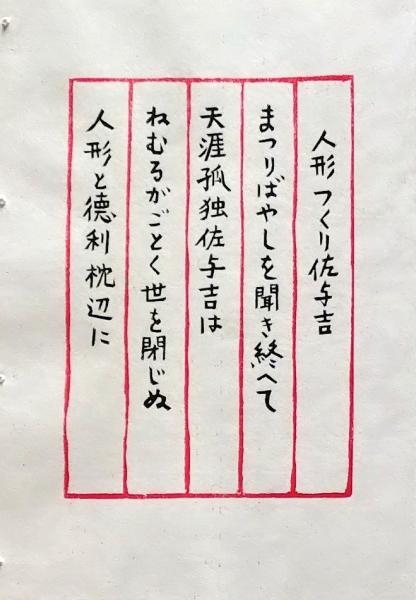 人形つくり佐与吉
まつりばやしを聞き終へて
天涯孤独佐与吉は
ねむるがごとく世を閉じぬ
人形と徳利枕辺に